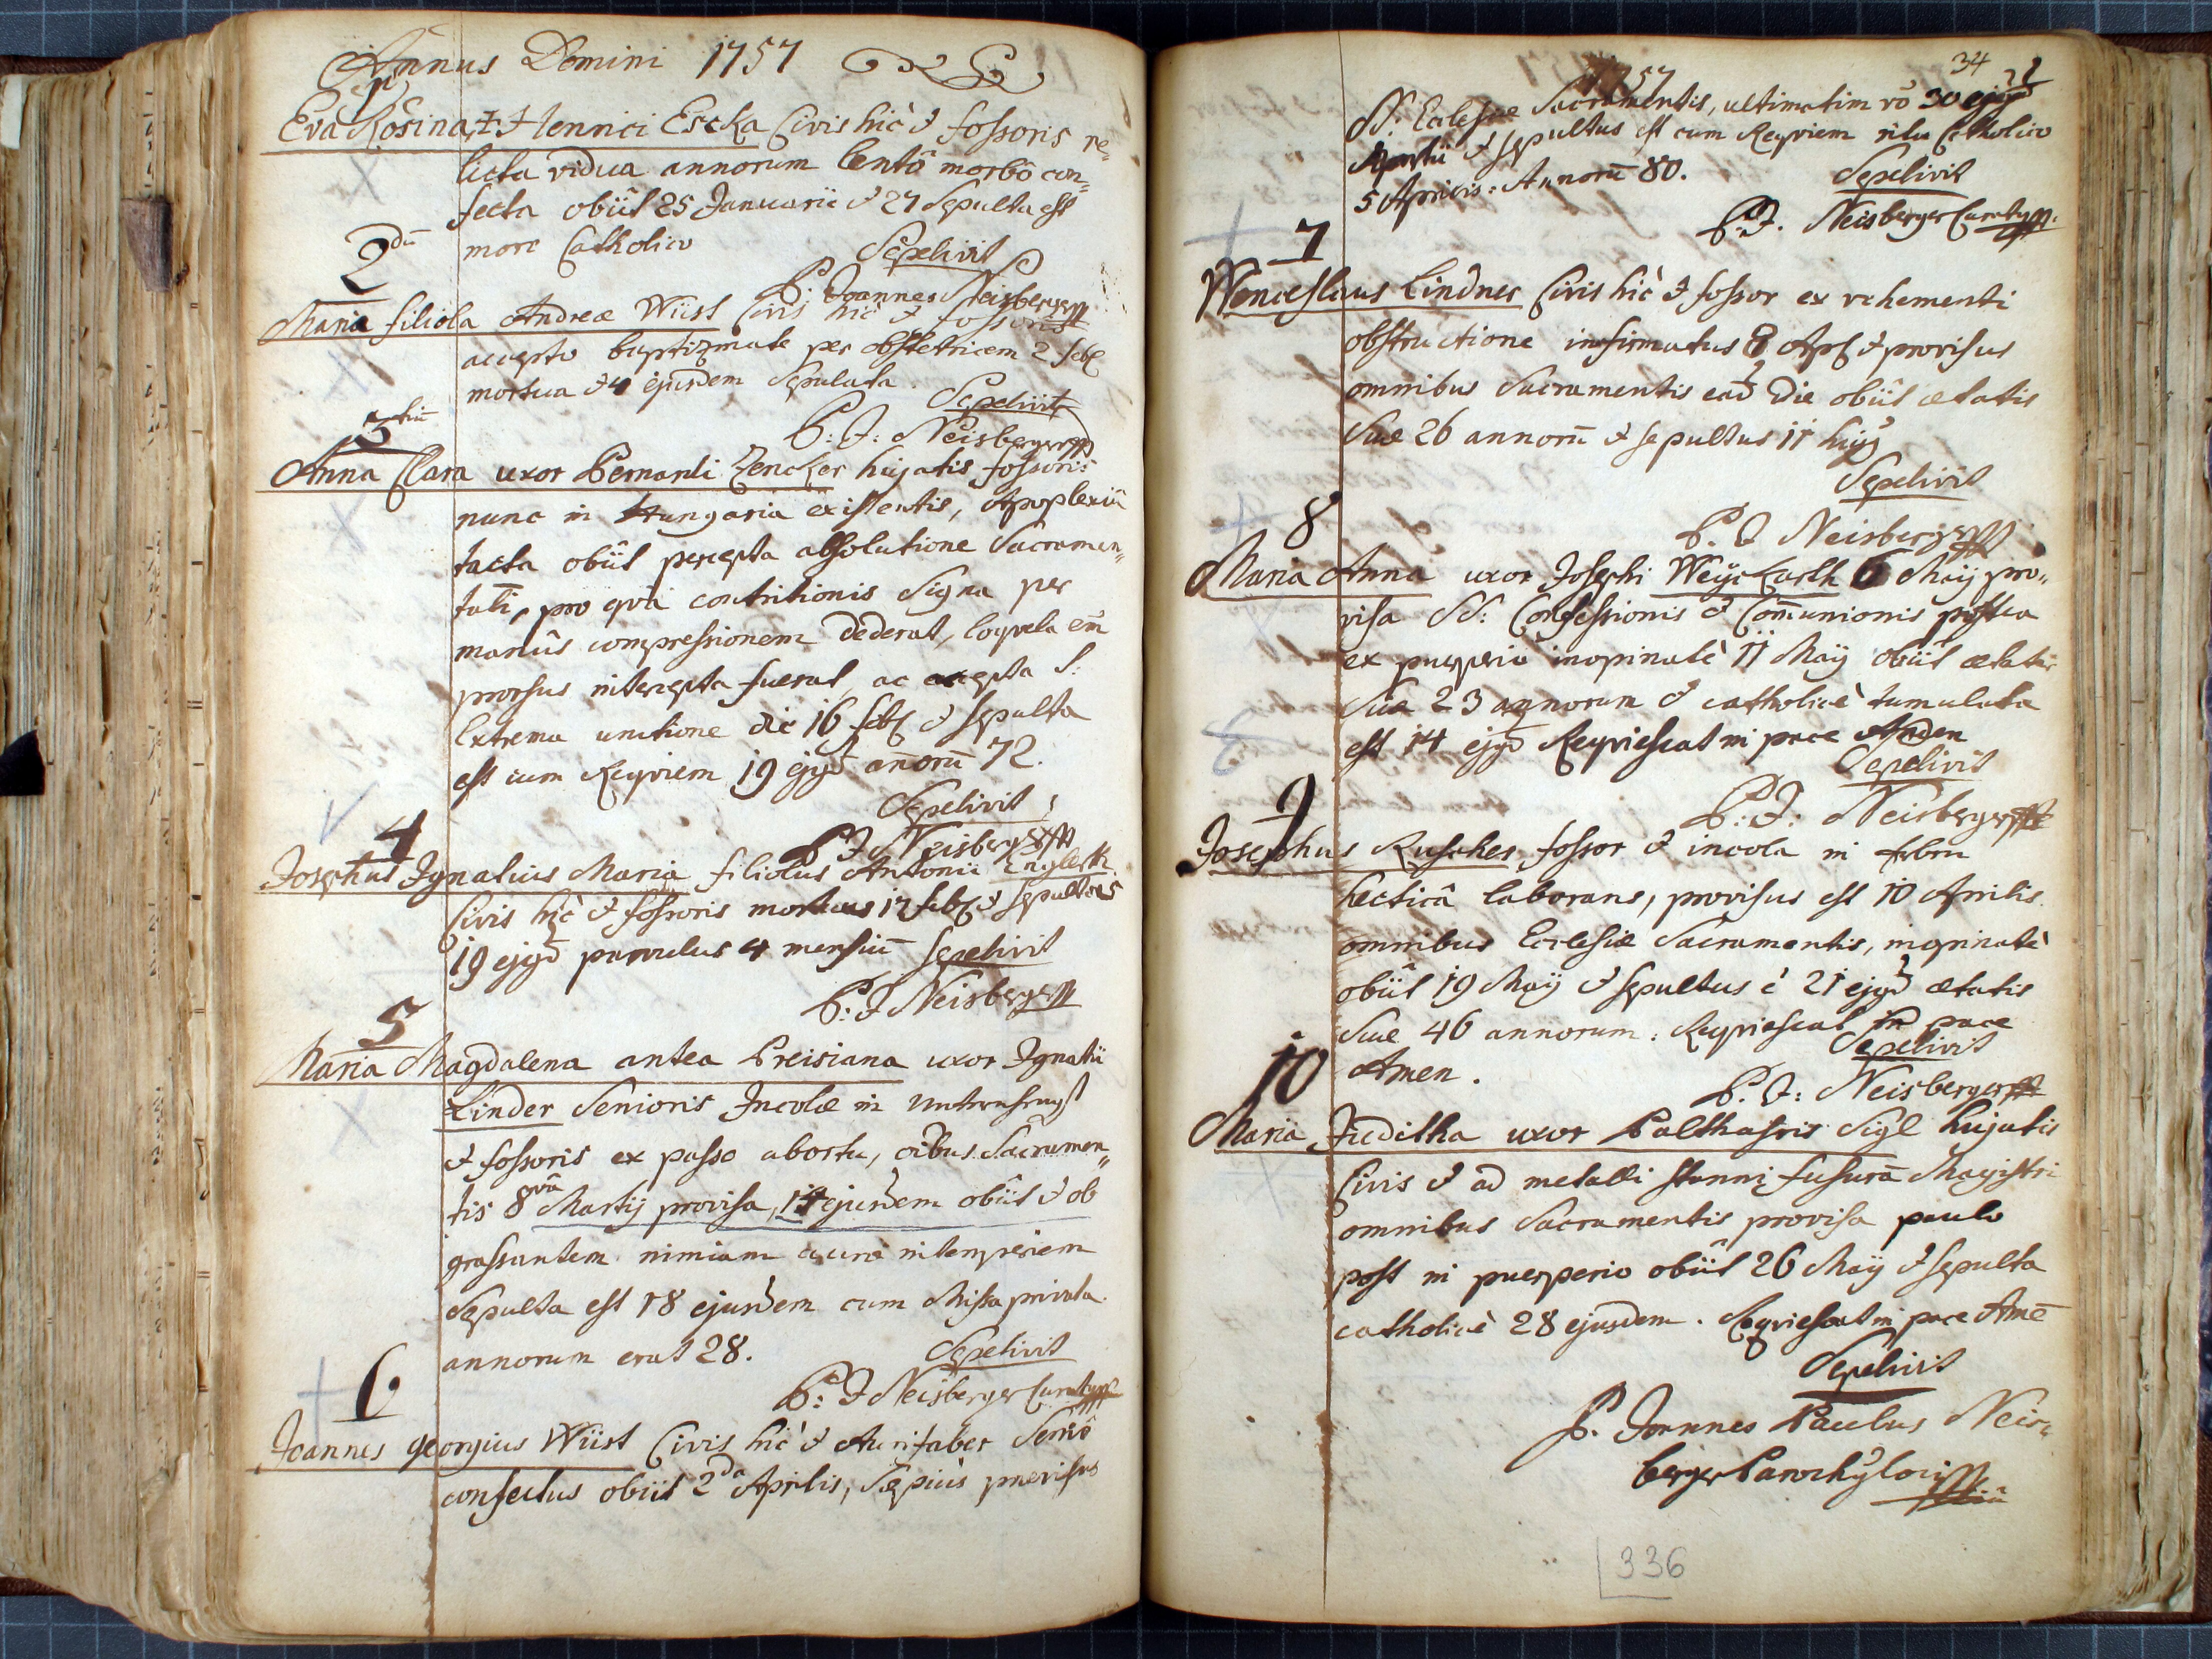 Annus Domini 1757
Eva Rosina + Hennrici Escka Civis hic & fossoris re=
licta vidua annorum lentô morbô con=
fecta obiit 25 Januarii & 27 Sepulta est
more Catholico Sepelivit
2dũ
P. Joannes Neisberger
Maria filiola Andreæ Wüst Civis hic & fossoris
accepto baptizmate per obstetricem 2 feb
mortua & 4 ejusdem Sepulata.
Sepelivit
3tiũ
P: J: Neisberger
Anna Clara uxor Bernardi Zencker hujatis fossoris
nunc in Hungaria existentis, Apoplexiâ
tacta obiit percepta absolutione Sacramen„
tali, pro qva contritionis Signa per
manûs compressionem dederat, loqvela em̃
prorsus intercepta fuerat, ac accepta S:
Extrema unctione die 16 feb & Sepulta
est cum Reqviem 19 ejgd anõrũ 72.
Sepelivit
4
P J Neisberger
Josephus Ignatius Maria filiolus Antonii Englerth
Civis hic & fossoris mortuus 17 feb & Sepultus
19 ejgd parvulus 4 mensiũ Sepelivit
P: J Neisberger
5
Maria Magdalena antea Preisiana uxor Ignatii
Linder Senioris Incolæ in
& fossoris ex passo abortu, oĩbus Sacramen„
tis 8va Martij provisa, 14 ejusdem obiit & ob
grassantem nimiam auræ intemperiem
Sepulta est 18 ejusdem cum Missa privata.
annorum erat 28. Sepelivit
6
P: J Neisberger Curatg
Joannes georgius Wüst Civis hic & Aurifaber Seniô
confectus obiit 2da Aprilis, Sæpius provisus
34
1757
SS: Ecclesiæ Sacramentis, ultimatim vo 30 ejgd
Martii & sepultus est cum Reqviem ritu Catholico
5 Aprilis: Annorũ 80. Sepelivit
P: J. Neisberger Curatg
7
Wenceslaus Lindner Civis hic & fossor ex vehementi
obstructione infirmatus 8 Apl & provisus
omnibus Sacramentis ead die obiit ætatis
Suæ 26 annorũ & sepultus 11 hujg
Sepelivit
8
P. J Neisberger
Maria Anna uxor Josephi Weyckarth 6 Maij pro„
visa SS: Confessionis & Com̃unionis postea
ex puerperio inopinatè 11 Maij obiit ætatis
Suæ 23 annorum & catholicè tumulata
est 14 ejgd Reqviescat in pace Amen
Sepelivit
9
P: J: Neisberger
Josephus Ruscher fossor & incola in febru
hecticâ laborans, provisus est 10 Aprilis
omnibus Ecclesiæ Sacramentis, inopinatè
obiit 19 Maij & sepultus è 21 ejgd ætatis
Suæ 46 annorum. Reqviescat in pace
Amen. Sepelivit
10
P. J: Neisberger
Maria Juditha uxor Balthasris Sigl hujatis
Civis & ad metalli stanni fusurã Magistri
omnibus Sacramentis provisa paulo
post in puerperio obiit 26 Maij & Sepulta
catholicè 28 ejusdem. Reqviescat in pace Amẽ
Sepelivit
P. Joannes Paulus Neis=
berger Parochg loci
336